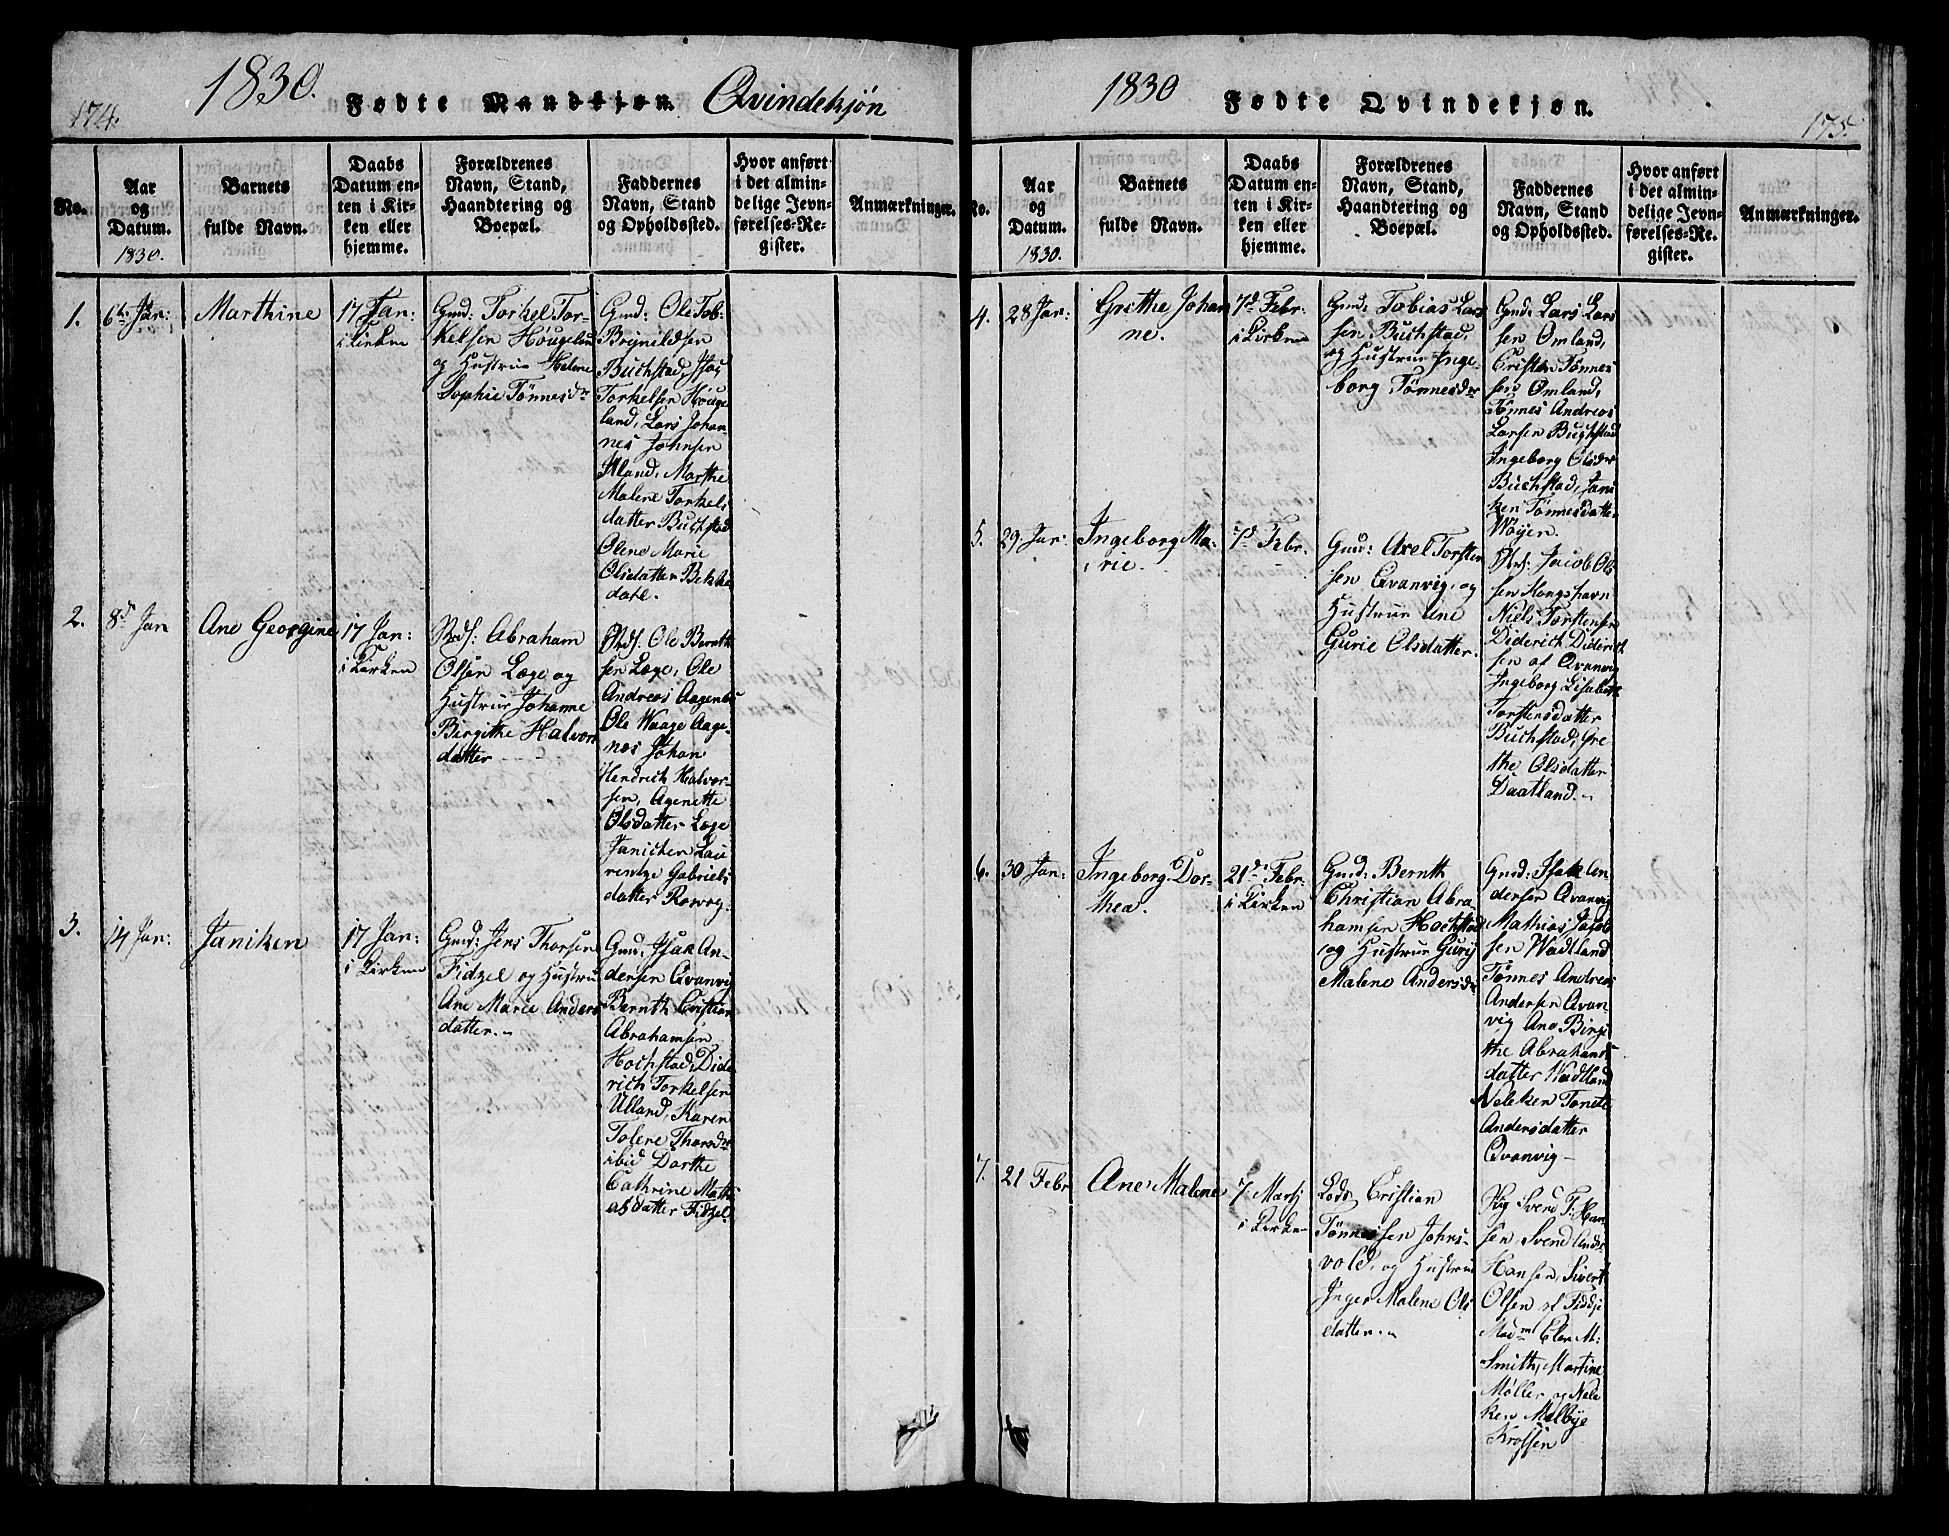 174.
1830. Fødte Mandkjøn. Qvindekjøn
No.
Aar
og
Datum.
1830.
Barnets
fulde Navn.
Daabs
Datum en-
ten i Kir-
ken eller
hjemme.
Forældrenes
Navn, Stand,
Haandtering og
Boepæl.
Faddernes
Navn, Stand
og Opholdssted.
Hvor anført
i det almin-
delige Jevn-
førelses-Re-
gister.
Anmærkninger.
1.
6te Jan:
Marthine
17 Jan:
i Kirken
Gmd: Torkel Tor-
kelsen Hougeland
og Hustrue Helene
Sophie Tønnesdr
Gmd: Ole Tob:
Brynildsen
Buchstad, Isaq
Torkelsen Houge
land, Lars Johan
nes Johnsen
Uland, Marthe
Malene Torkels
datter Buchstad
Olene Marie
Olsdatter Bekke
dahl.
2.
8d Jan
Ane Georgine
17 Jan:
i Kirken
Abraham
Olsen Læge og
Hustrue Johanne
Birgithe Halvors
datter
Ole Bernth
sen Læge, Ole
Andreas Aagenæs
Ole Waage Aage-
næs Johan
Hendrich Halvor-
sen, Agenette
Olsdatter Læge
Janichen Lau
rentze Gabriels
datter Rosvog.
3.
14 Jan:
Janiken
17 Jan:
i Kirken
Gmd: Jens Thorsen
Fidzel og Hustrue
Ane Marie Anders
datter.
Gmd: Isak An-
dersen Qvanvig
Bernth Cristian
Abrahamsen
Hochstad, Dide
rich Torkelsen
Ulland, Karen
Tolene Thorsdr
ibid Dorthe
Cathrine Mathi
asdatter Fidzel.
1830 Fødte Qvindekjøn.
175.
No.
Aar
og
Datum.
1830.
Barnets
fulde Navn.
Daabs
Datum en-
ten i Kir-
ken eller
hjemme.
Forældrenes
Navn, Stand,
Haandtering og
Boepæl.
Faddernes
Navn, Stand
og Opholdssted.
Hvor anført
i det almin-
delige Jevn-
førelses-Re-
gister.
Anmærkninger.
4.
28 Jan:
Grethe Johan
ne.
7d Febr:
i Kirken
Gmd: Tobias Lars
sen Buchstad,
og Hustrue Inge-
borg Tønnesdr
Gmd: Lars Lars
sen Omland,
Cristen Tønnes
sen Omland,
Tønnes Andreas
Larsen Buchstad
Ingeborg Olsdr
Buchstad, Jani
ken Tønnesdatter
Røyer.
5.
29 Jan:
Ingeborg Ma-
rie.
7d Febr.
Gmd: Axel Torsten
sen Qvanvig, og
Hustrue Ane
Gurie Olsdatter.
Jacob Ols
sen Kongshavn
Niels Torstensen
Diderich Diderich
sen af Qvanvig
Ingeborg Lisabeth
Torstensdatter
Buchstad, Gre
the Olsdatter
Daatland.
6.
30 Jan:
Ingeborg Dor-
thea.
21d Febr:
i Kirken
Gmd: Bernth
Christian Abra-
hamsen Hochstad
og Hustrue Gurij
Malene Andersdr
Gmd: Isak An-
dersen Qvanvig
Mathias Jacob
sen Wadtland
Tønnes Andreas
Andersen Qvan-
vig Ane Birgi
the Abrahams
datter Wadtland
Neleken Tonete
Andersdatter
Qvanvig
7.
21 Febr
Ane Malene
7 Martj
i Kirken
Lods Cristian
Tønnessen Johns-
vold, og Hustrue
Inger Malene Ols
datter.
Svend T: Han
sen, Svend Andr
Hansen, Sivert
Olsen Fidkje
Madml Elen M:
Smith, Martine
Møller og Nele
ken Melbye
Krossen